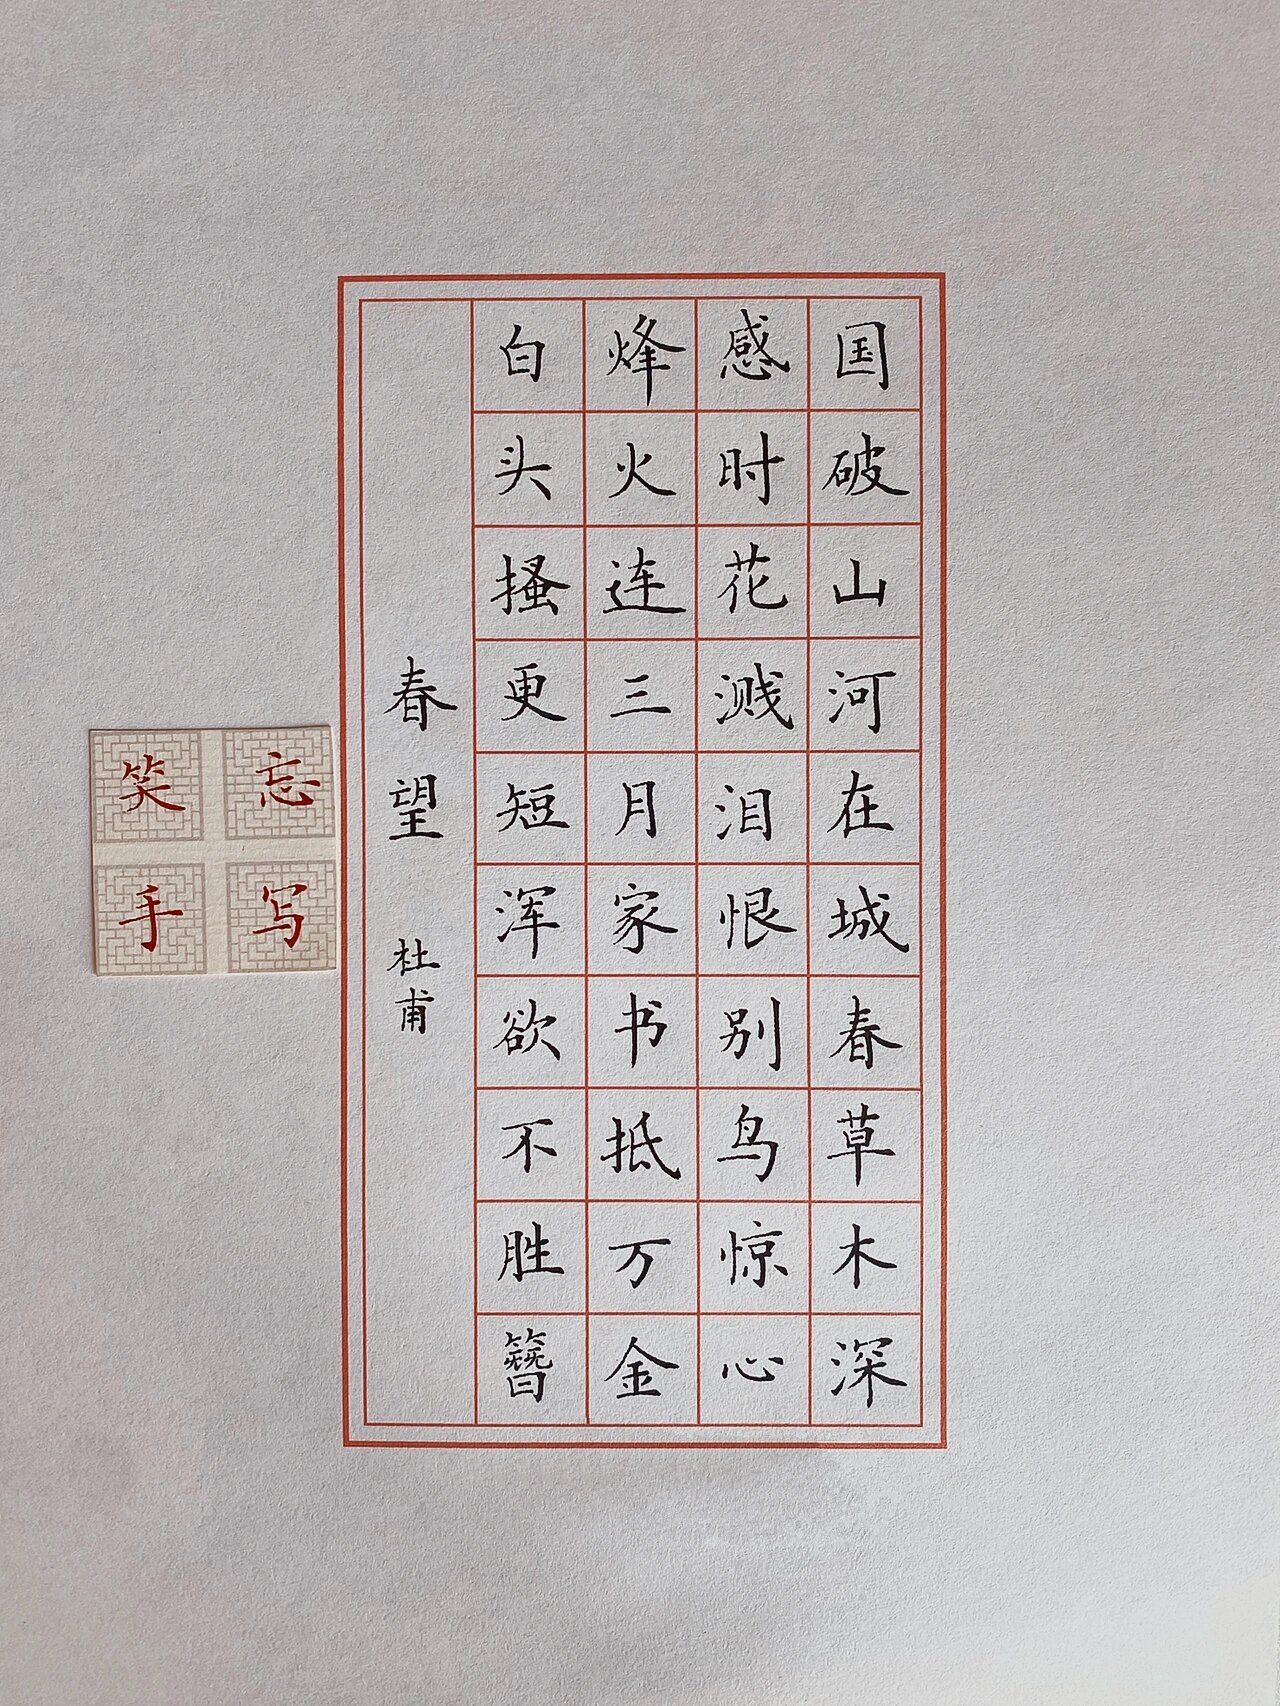 国破山河在城春草木深
感时花溅泪恨别鸟惊心
烽火连三月家书抵万金
白头搔更短浑欲不胜簪
春望 杜甫
忘写
笑手